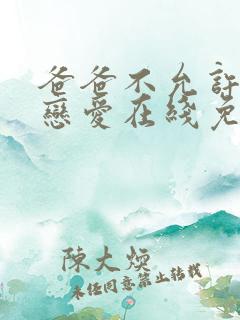 爸爸不允許
戀愛在綫免
陳大煥
未经同意禁止转载